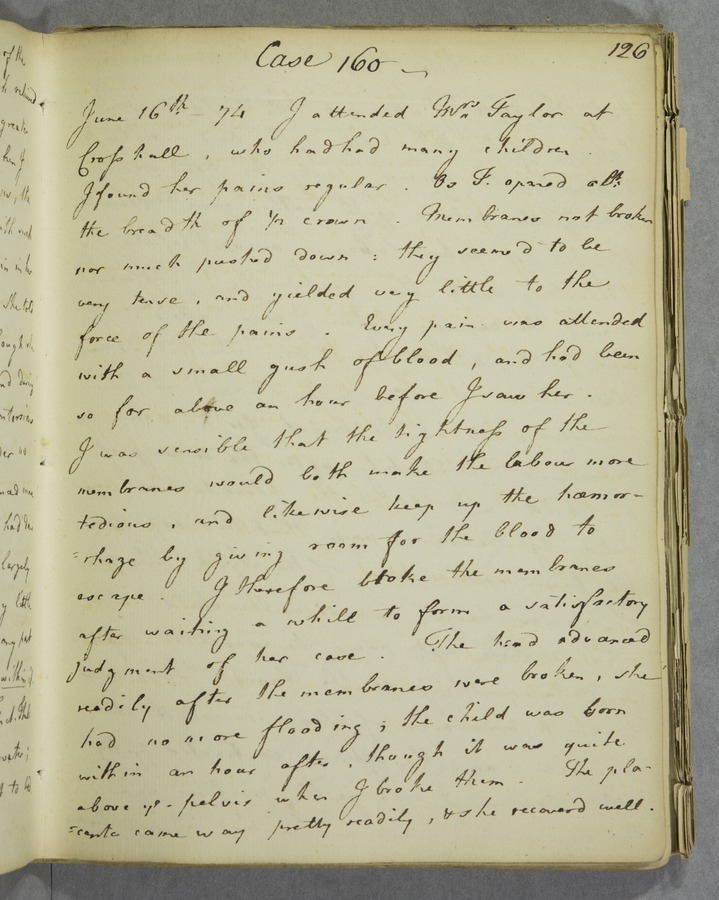 126
Case 160
June 16th - 74 I attended Mrs Taylor at
Crosshall, who had had many children.
I found her pains regular. Os T. opened abt
the breadth of 1/2 crown. Membranes not broken
nor much pushed down: they seemed to be
very tense, and yielded very little to the
force of the pains. Every pain was attended
with a small gush of blood, and had been
so for above an hour before I saw her.
I was sensible that the tightness of the
membranes would both make the labour more
tedious, and likewise keep up the hæmor-
=rhage by giving room for the blood to
escape. I therefore broke the membranes
after waiting a while to form a satisfactory
judgment of her case. The head advanced
readily after the membranes were broken, she
had no more flooding; the child was born
within an hour after, though it was quite
above ye pelvis when I broke them. The pla-
=centa came way pretty readily, & she recoverd well.